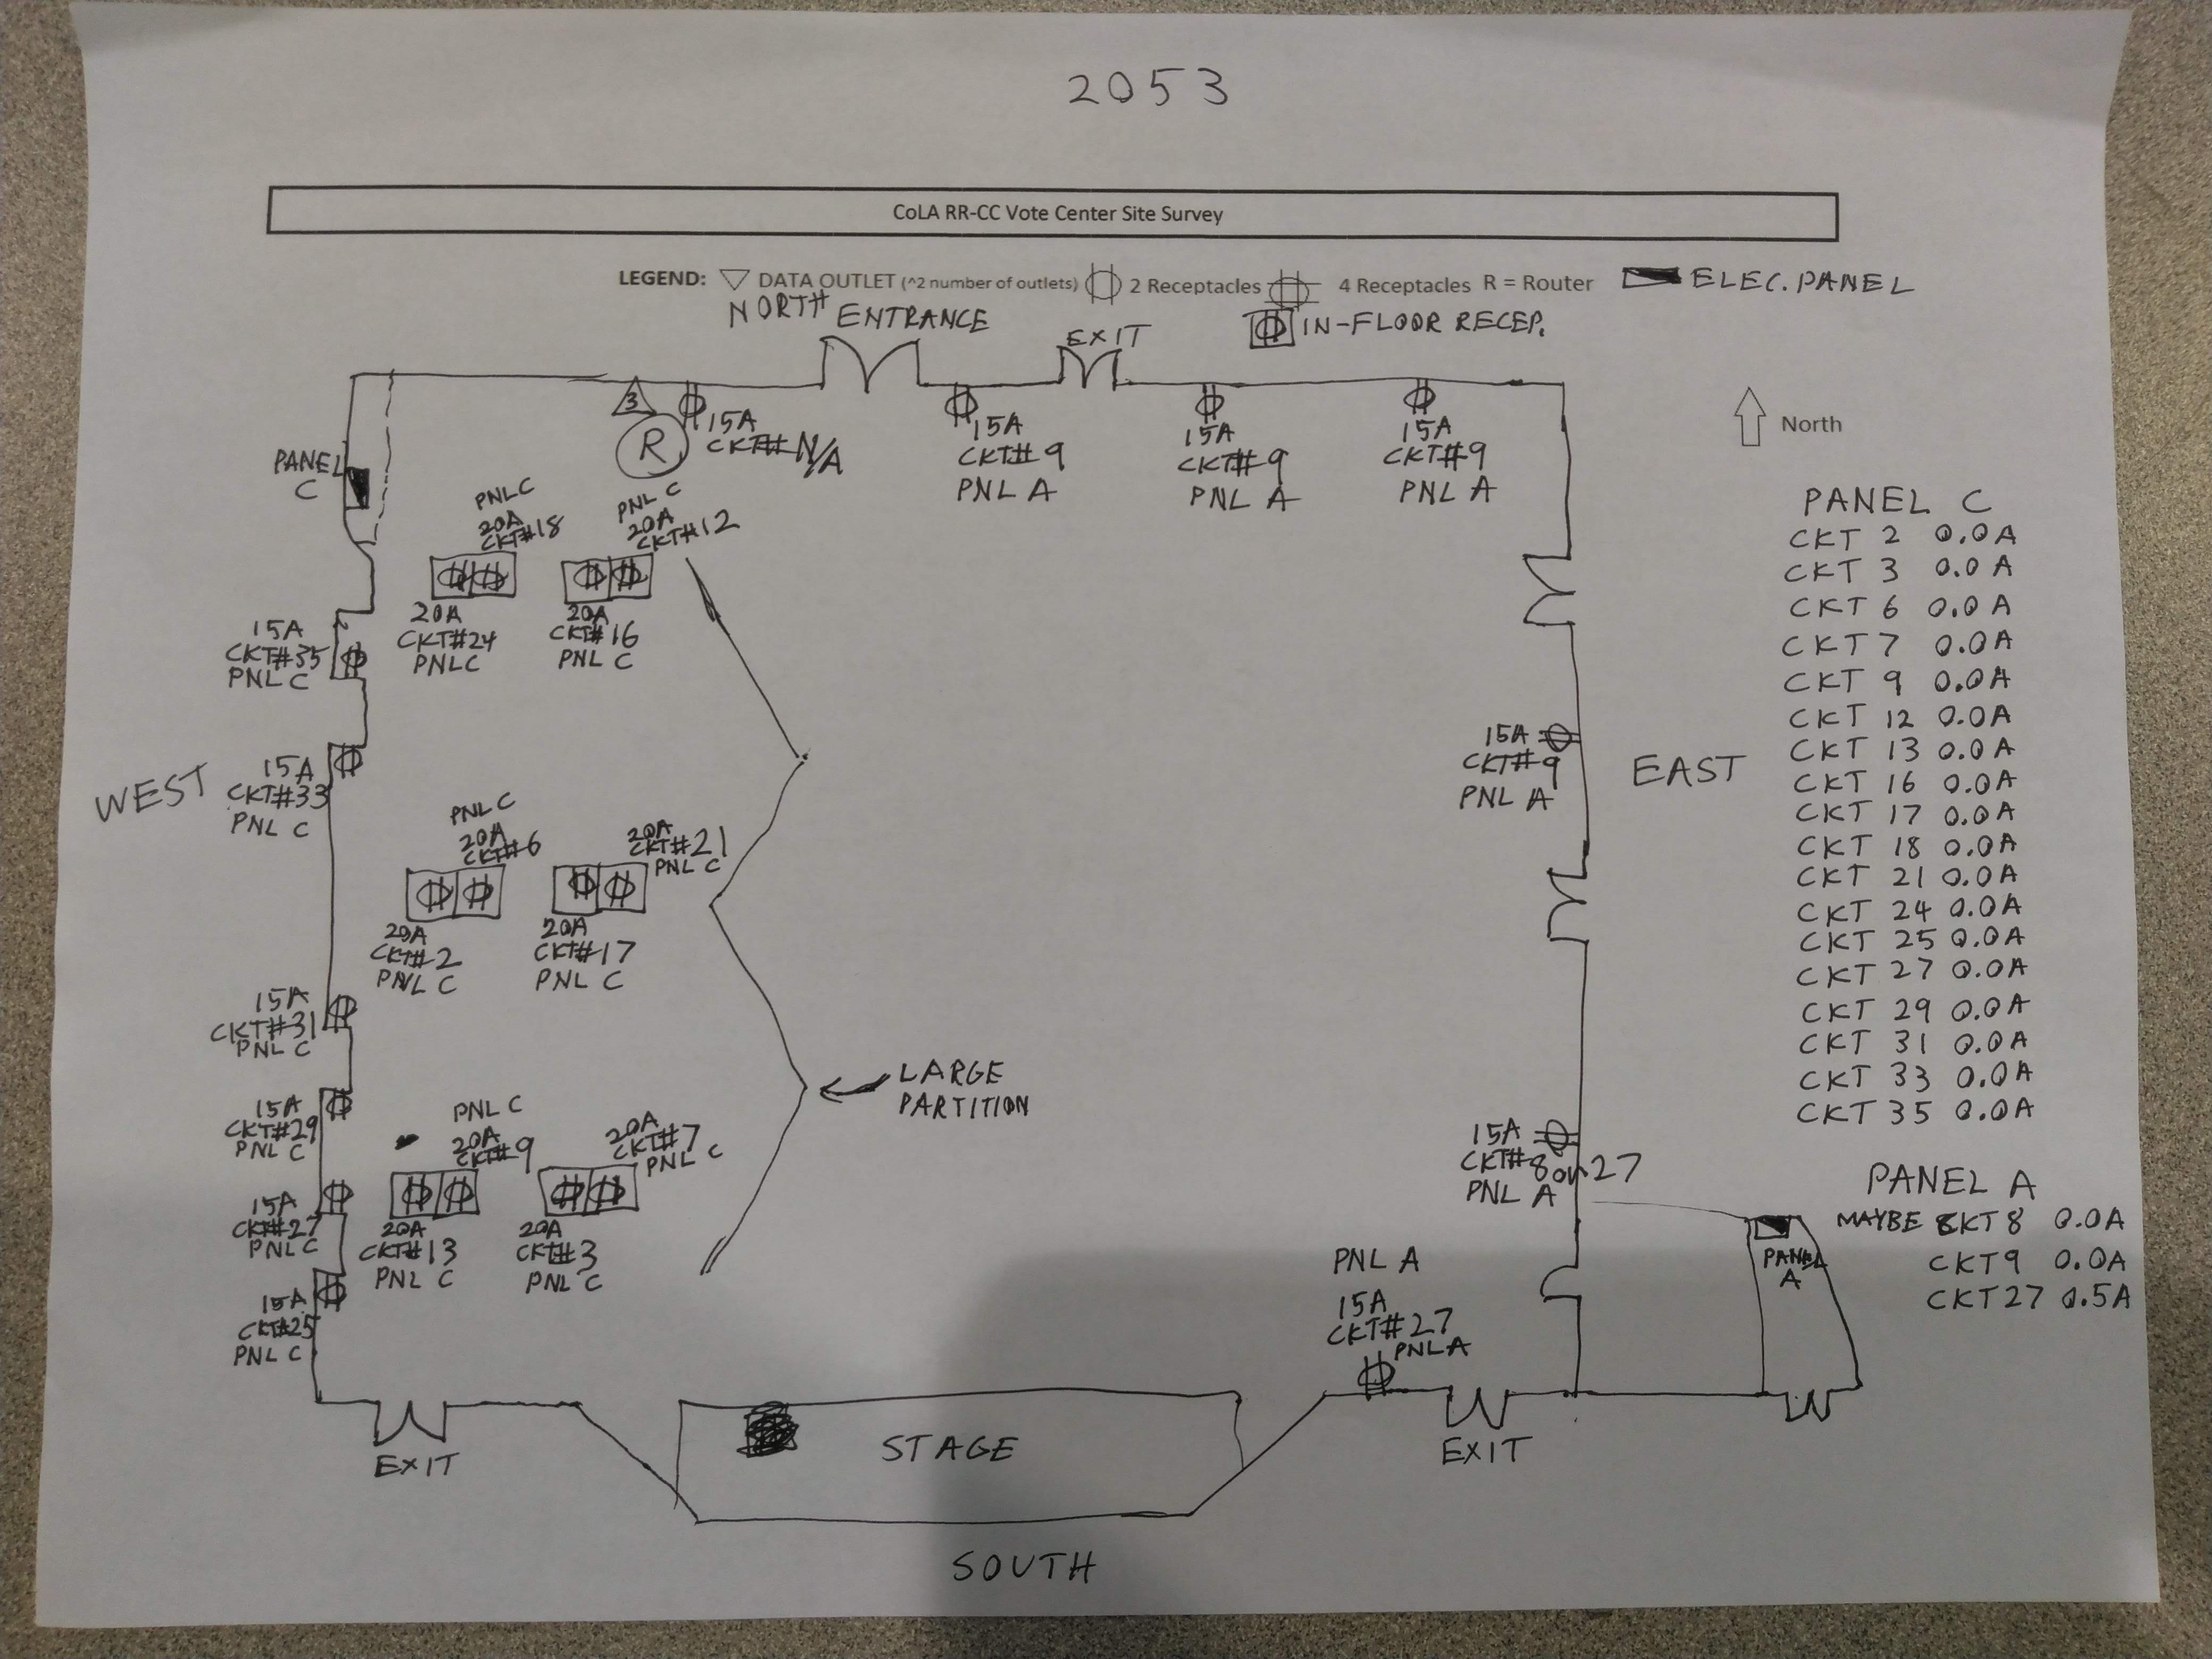 2053
CoLA RR-CC Vote Center Site Survey
LEGEND: DATA OUTLET (^2 number of outlets) 2 Receptacles 4 Receptacles R = Router ELEC. PANEL
IN-FLOOR RECEP.
NORTH
ENTRANCE
EXIT
3
R
15A
CKT# N/A
15A
CKT# 9
PNL A
15A
CKT# 9
PNL A
15A
CKT#9
PNL A
North
PANEL
C
PNL C
20A
CKT#18
20A
CKT#24
PNL C
PNL C
20A
CKT#12
20A
CKT#16
PNL C
15A
CKT#35
PNL C
WEST
15A
CKT#33
PNL C
PNL C
20A
CKT#6
20A
CKT#2
PNL C
20A
CKT#21
PNL C
20A
CKT#17
PNL C
15A
CKT#31
PNL C
15A
CKT#29
PNL C
15A
CKT#27
PNL C
15A
CKT#25
PNL C
PNL C
20A
CKT#9
20A
CKT#13
PNL C
20A
CKT#7
PNL C
20A
CKT#3
PNL C
LARGE
PARTITION
15A
CKT#9
PNL A
EAST
15A
CKT#8 or 27
PNL A
PNL A
15A
CKT#27
PNL A
PANEL
A
EXIT
STAGE
EXIT
SOUTH
PANEL C
CKT 2 0.0A
CKT 3 0.0A
CKT 6 0.0A
CKT 7 0.0A
CKT 9 0.0A
CKT 12 0.0A
CKT 13 0.0A
CKT 16 0.0A
CKT 17 0.0A
CKT 18 0.0A
CKT 21 0.0A
CKT 24 0.0A
CKT 25 0.0A
CKT 27 0.0A
CKT 29 0.0A
CKT 31 0.0A
CKT 33 0.0A
CKT 35 0.0A
PANEL A
MAYBE CKT 8 0.0A
CKT 9 0.0A
CKT 27 0.5A